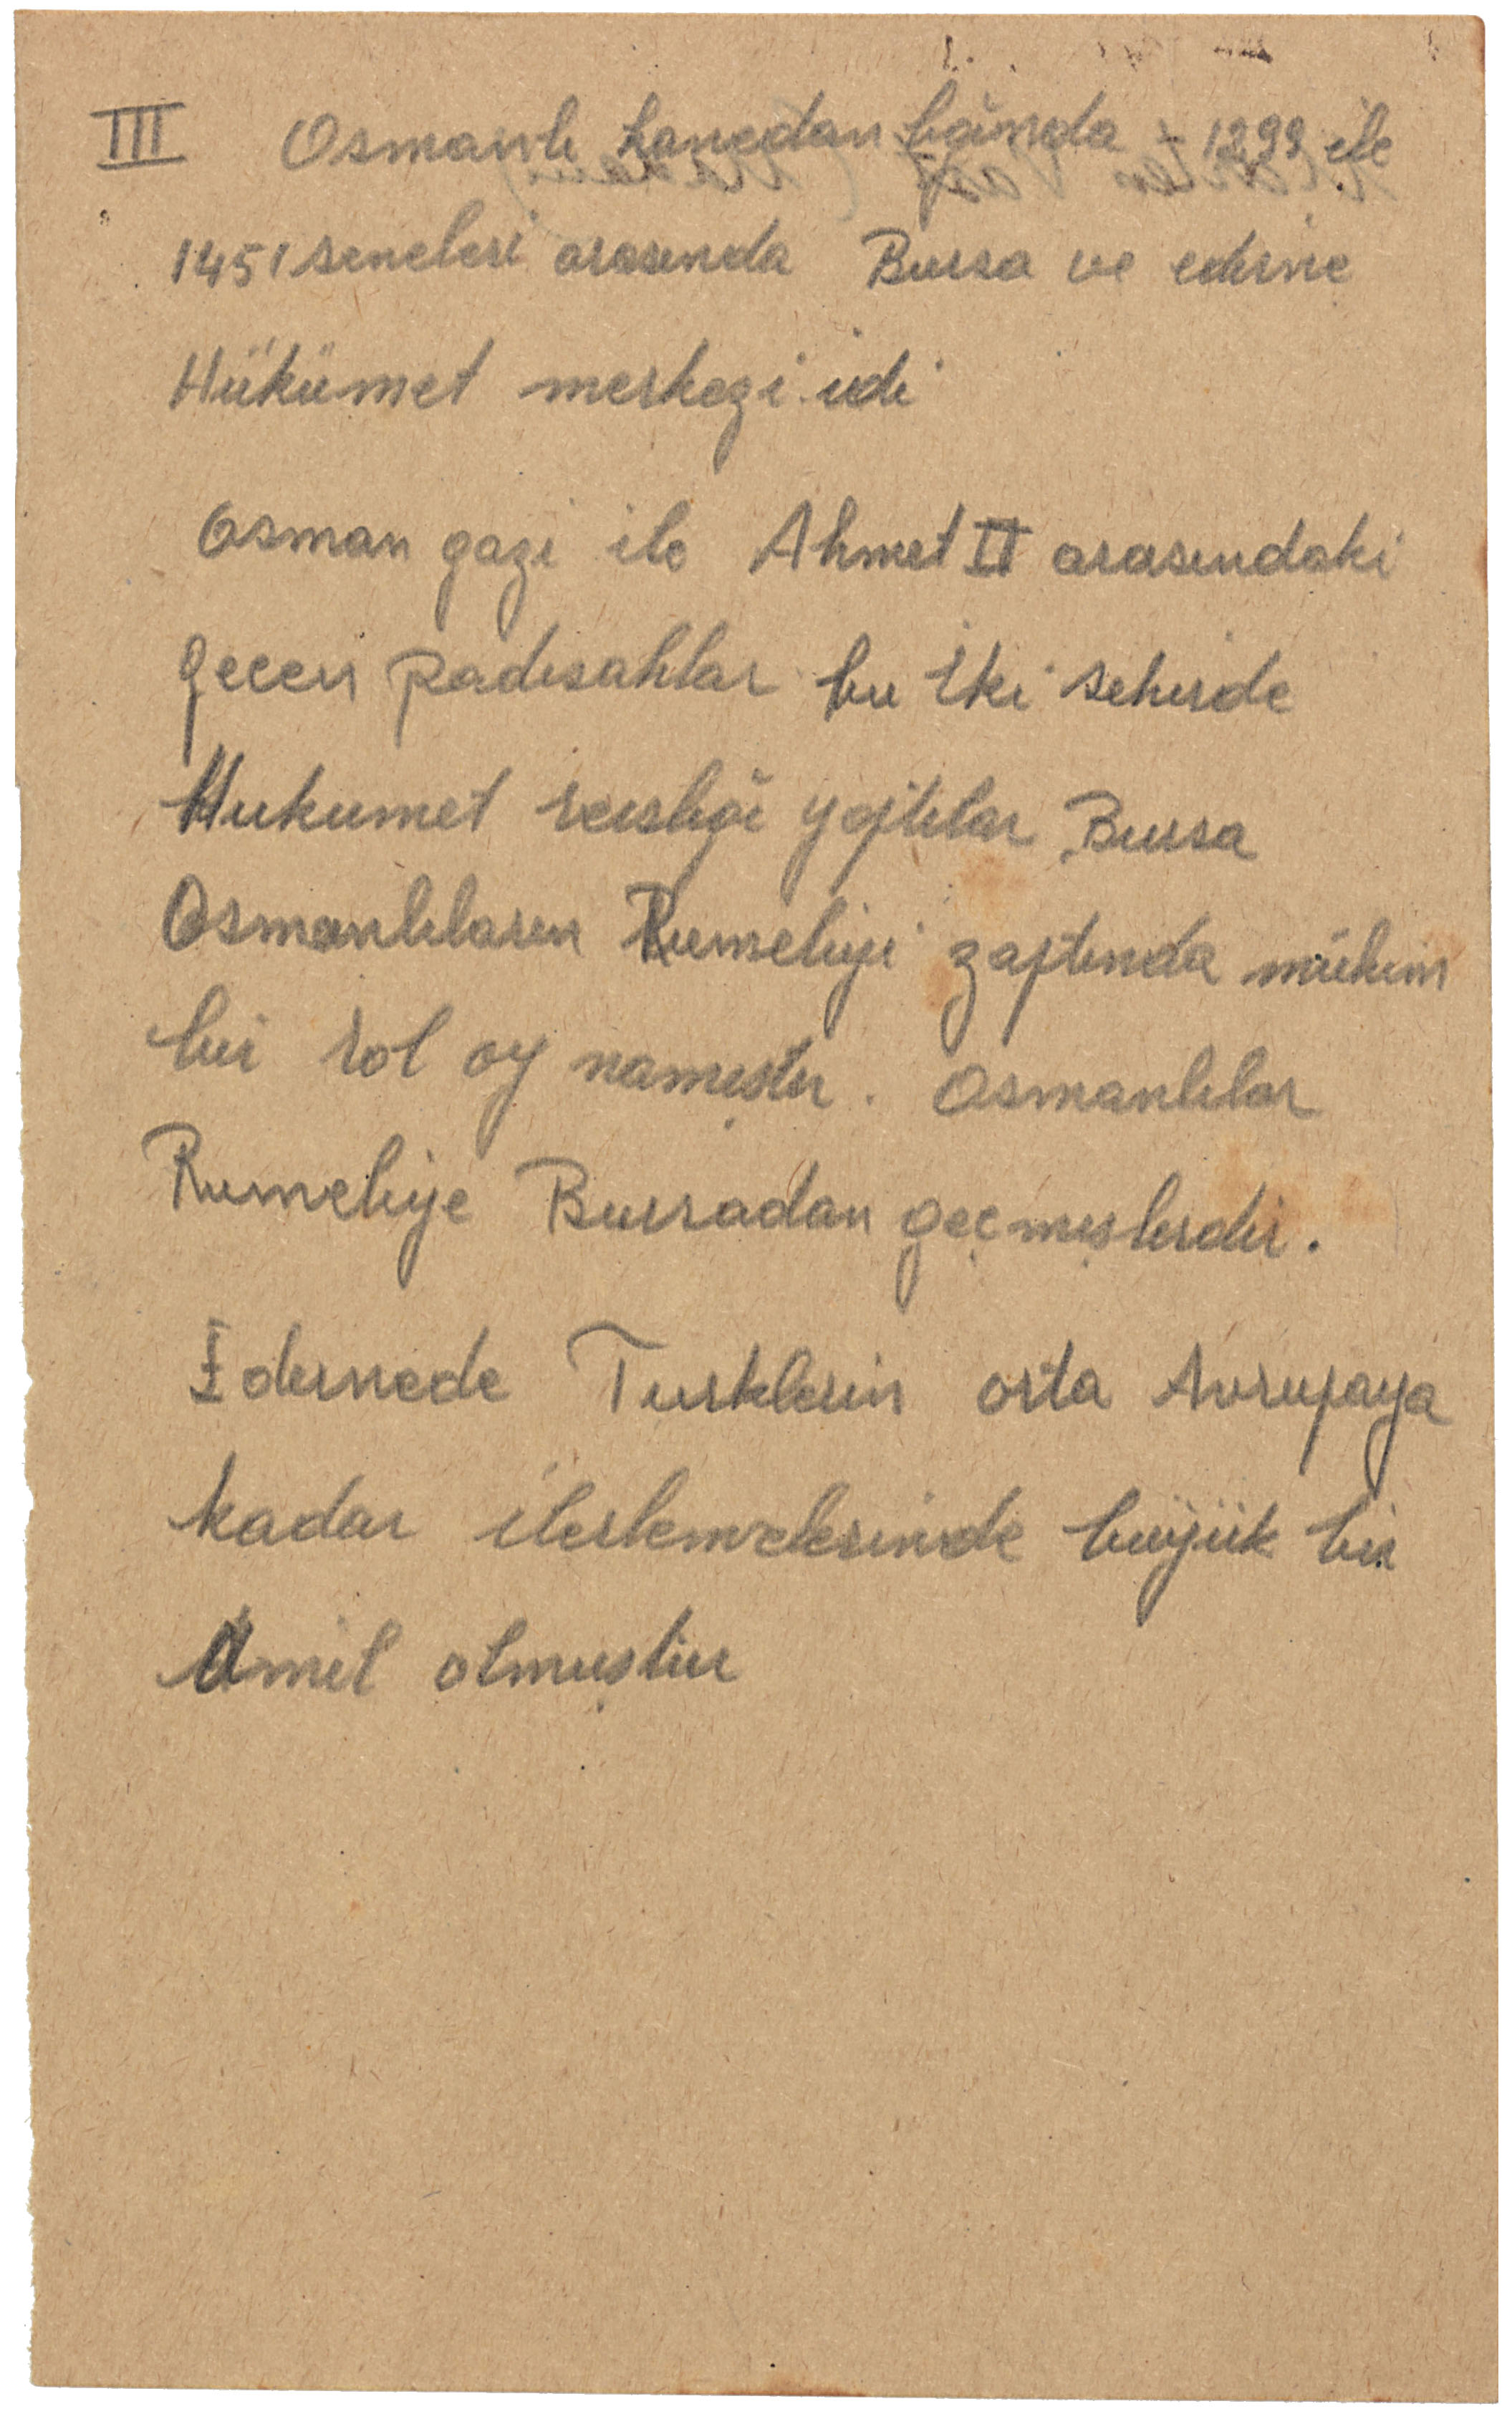 III Osmanlı hanedan bânında - 1299 ile
1451 seneleri arasında Bursa ve edirne
Hükümet merkezi idi
Osman gazi ile Ahmet II arasındaki
geçen padısahlar bu iki sehirde
Hukumet reisliği yaptılar Bursa
Osmanlıların Rumeliyi zaptında mühim
bir rol oy namıştır. Osmanlılar
Rumeliye Bursadan geçmişlerdir.
Edirnede Turklerin orta Avrupaya
kadar ilerlemelerinde büyük bir
Amil olmuştur